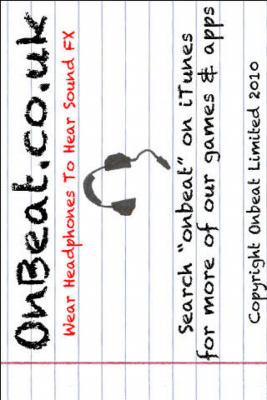 OnBeat.co.uk
Wear Headphones To Hear Sound FX
Search "onbeat" on iTunes
for more of our games & apps
Copyright Onbeat Limited 2010